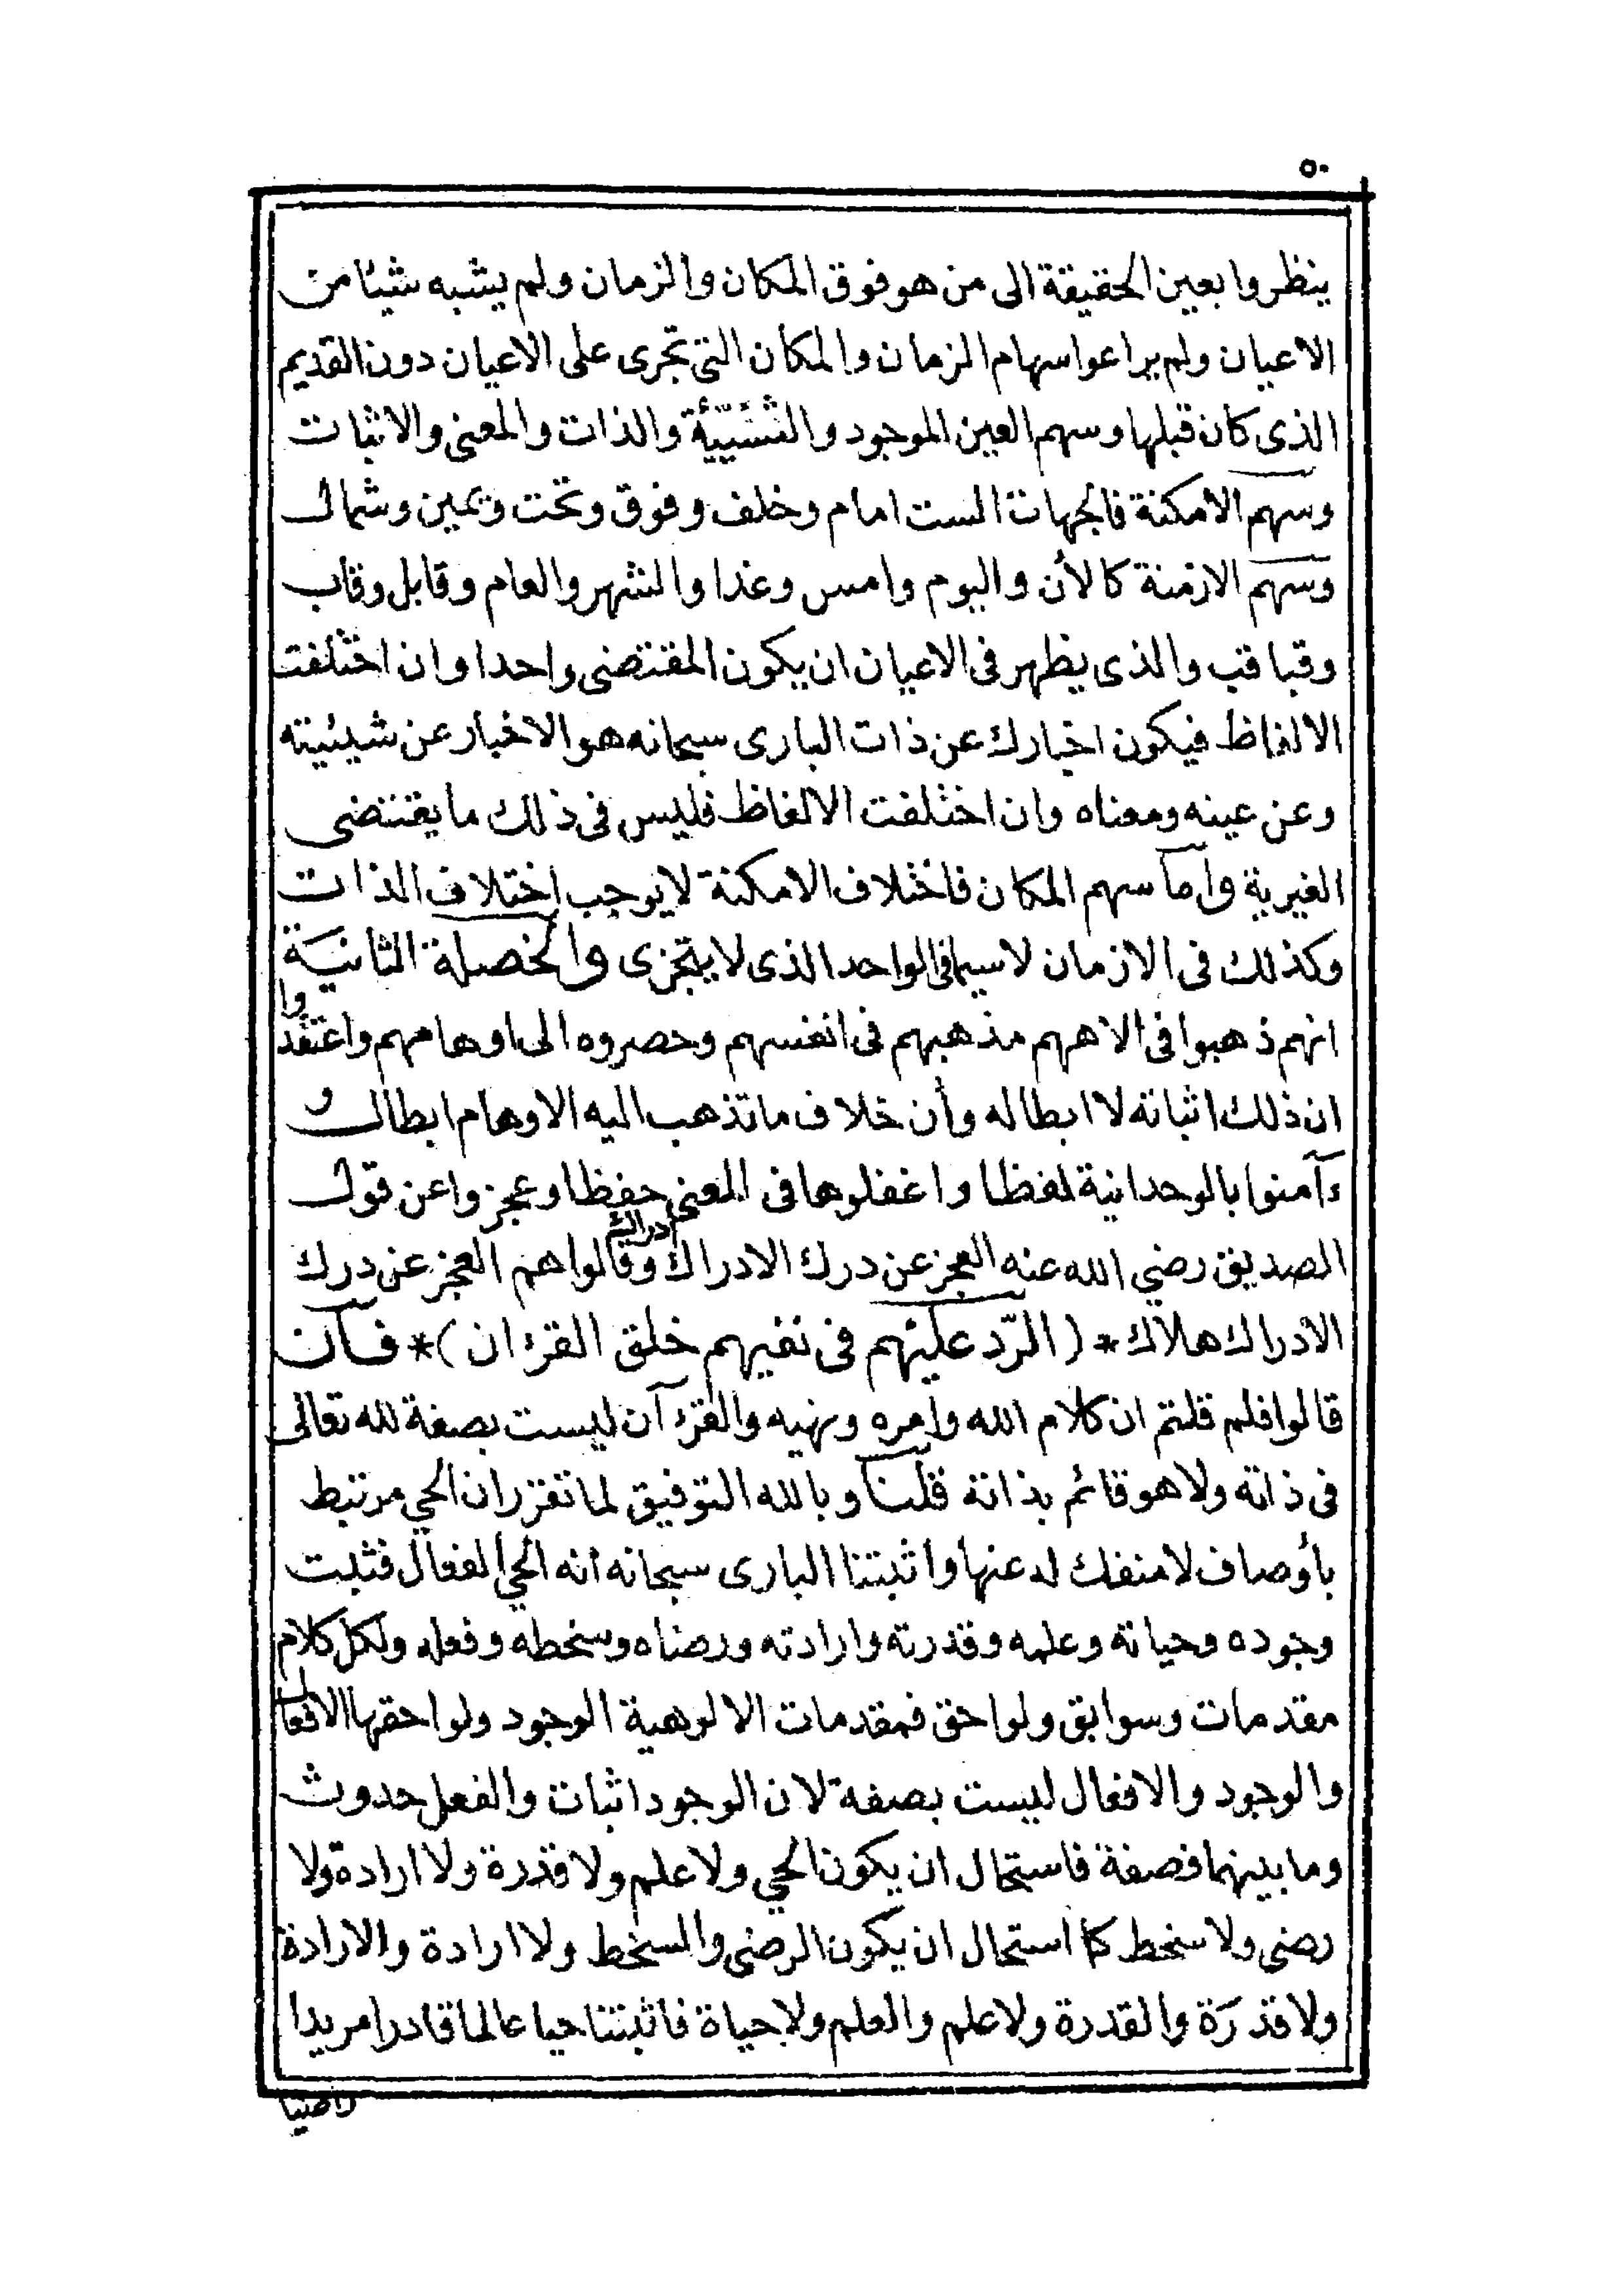 ٥٠
ينظروا بعين الحقيقة الى من هو فوق المكان والزمان ولم يشبه شيئا من
الاعيان ولم يراعوا سهام الزمان والمكان التي تجرى على الاعيان دون القديم
الذى كان قبلها وسهم العين الموجود والشيئية والذات والمعنى والاثبات
وسهم الامكنة فالجهات الست امام وخلف وفوق وتحت ويمين وشمال
وسهم الازمنة كالأن واليوم وامس وغدا والشهر والعام وقابل وقاب
وقباقب والذى يظهر فى الاعيان ان يكون المقتضى واحدا وان اختلفت
الالفاظ فيكون اخبارك عن ذات البارى سبحانه هو الاخبار عن شيئيته
وعن عينه ومعناه وان اختلفت الالفاظ فليس فى ذلك ما يقتضى
الغيرية وأما سهم المكان فاختلاف الامكنة لا يوجب اختلاف الذات
وكذلك فى الازمان لا سيما فى الواحد الذى لا يتجزى والخصلة الثانية
انهم ذهبوا فى الاههم مذهبهم فى انفسهم وحصروه الى اوهامهم واعتقدوا
ان ذلك اثباته لا ابطاله وأن خلاف ما تذهب اليه الاوهام ابطال و
ءآمنوا بالوحدانية لفظا واغفلوها فى المعنى حفظا وعجزوا عن قول
الصديق رضي الله عنه العجز عن درك الادراك ادراك وقالوا هم العجز عن درك
الادراك هلاك * ( الرّد عليهم فى نفيهم خلق القرءان ) * فان
قالوا فلم قلتم ان كلام الله وأمره ونهيه والقرءآن ليست بصفة لله تعالى
فى ذاته ولا هو قائم بذاته قلنا وبالله التوفيق لما تقرر ان الحي مرتبط
بأوصاف لا منفك له عنها وأثبتنا البارى سبحانه أنه الحي الفعال فثبت
وجوده وحياته وعلمه وقدرته وارادته ورضاه وسخطه وفعله ولكل كلام
مقدمات وسوابق ولواحق فمقدمات الالوهية الوجود ولواحقها الافعال
والوجود والافعال ليست بصفة لان الوجود اثبات والفعل حدوث
وما بينهما فصفة فاستحال ان يكون الحي ولا علم ولا قدرة ولا ارادة ولا
رضى ولا سخط كما استحال ان يكون الرضى والسخط ولا ارادة والارادة
ولا قدرة والقدرة ولا علم والعلم ولا حياة فاثبتنا حيا عالما قادرا مريدا
راضيا